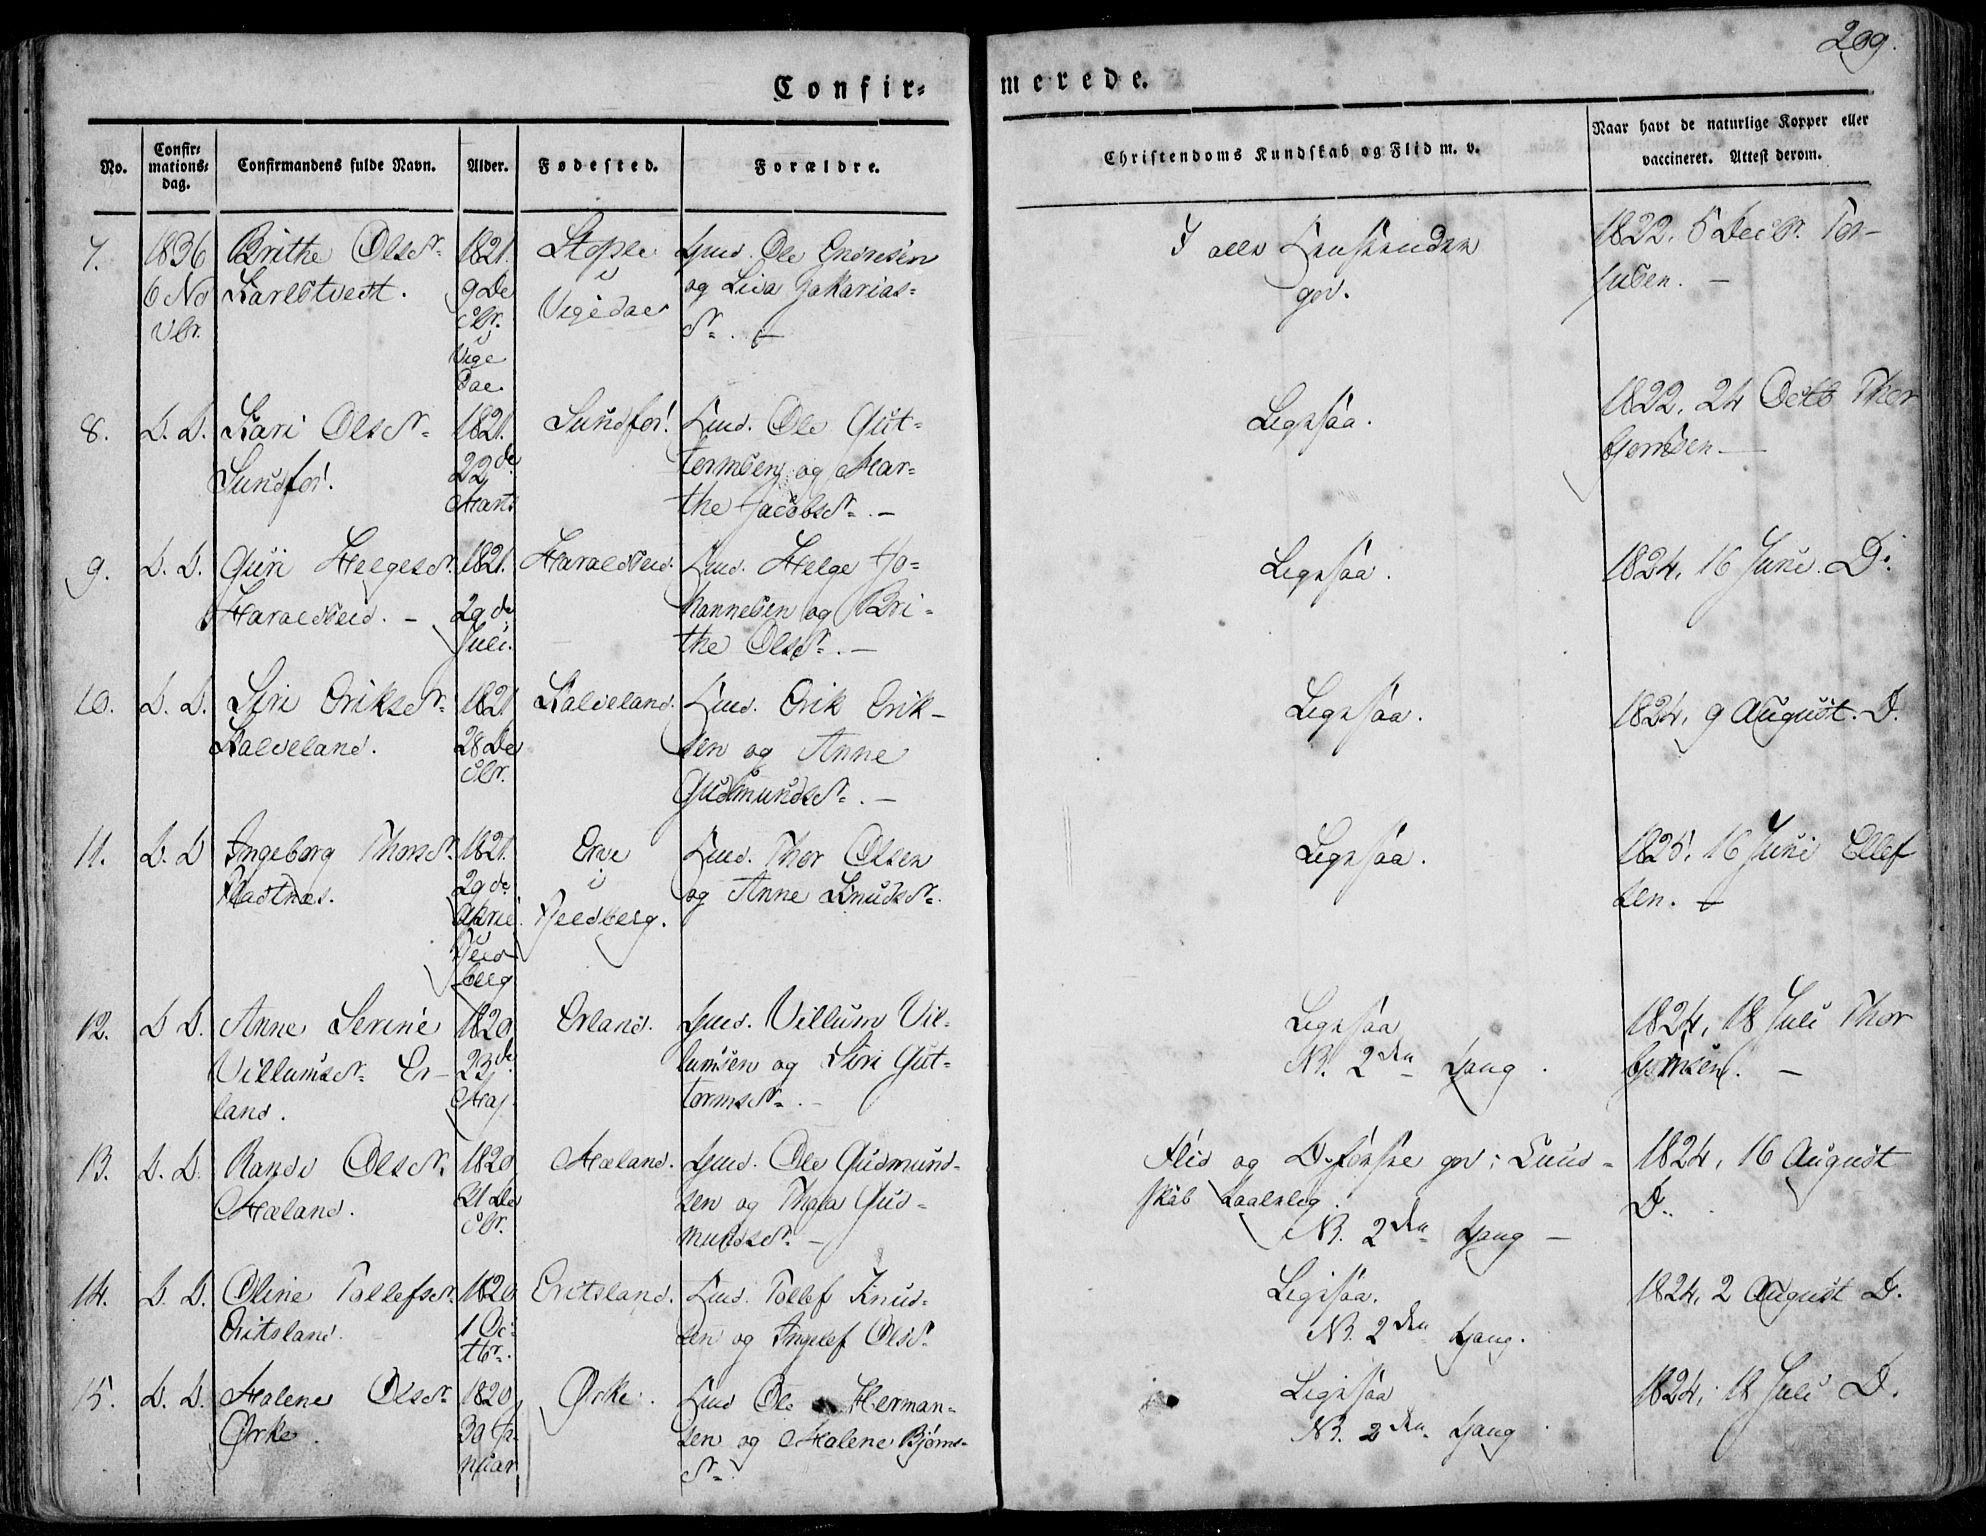 209.
Confir=
merede.
No.
Confir=
mations=
dag.
Confirmandens fulde Navn.
Alder.
Fødested.
Forældre.
Christendoms Kundskab og Flid m. v.
Naar havt de naturlige Kopper eller
vaccineret. Attest derom.
7.
1836
6 No
vbr.
Brithe Olsdr.
1821.
9 De
cbr.
i
Stople
i
Gmd. Ole
og Liva Zakarias=
dr. —
I alle Henseender
god.
1822, 5 Decbr.
8.
D. D.
Kari Olsdr.
Sundfor.
1821.
22de
Marts
Sundfor.
Gmd. Ole Gut=
tormsen og Mar=
the Jacobsdr. —
Ligesaa.
1822, 24 Octb Thor
bjørnsen —
9.
D. D.
Guri Helgesdr.
Haraldseid. —
1821.
29 de
Juli.
Haraldseid.
Gmd. Helge Jo=
hannesen og Bri=
the Olsdr. —
Ligesaa.
1824, 16 Juni. Do.
10.
D. D.
Siri Eriksdr.
Kalveland.
1821
28 De
cbr.
Kalveland.
Gmd. Erik Erik=
sen og Anne
Gudmundsdr. —
Ligesaa.
1824, 9 August. D.
11.
D. D
Ingeborg Thorsdr.
1821.
29 de
April
i
Gmd. Thor Olsen
og Anne Knudsdr.
Ligesaa.
1825, 16 Juni Ellef
sen. —
12.
D D.
Anne Serine
Villumsdr. Er=
land.
1820
23de
Maj.
Erland.
Gmd. Villum Vil=
lumsen og Siri Gut=
tormsdr. —
Ligesaa
NB. 2den Gang.
1824, 18 Juli Thor
bjørnsen. —
13.
D. D.
Randi Olsdr.
Mæland.
1820
21 De
cbr.
Mæland.
Gmd. Ole Gudmund=
sen og Gud=
mundsdr. —
Flid og Opførsel god; Kund=
skab taalelig.
NB. 2den Gang —
1824, 16 August
D.
14.
D. D.
Oline Tollefsdr.
Eritsland.
1820
1 Oc=
tbr.
Eritsland.
Gmd. Tollef Knud=
sen og Ingelef Olsdr.
Ligesaa.
NB. 2den Gang.
1824, 2 August D.
15.
D. D.
Malene Olsdr.
Ørke.
1820
30 Ja=
nuar
Ørke.
Gmd Ole Herman=
sen og Malene Bjørns=
dr.
Ligesaa
NB. 2den Gang
1824, 18 Juli D.